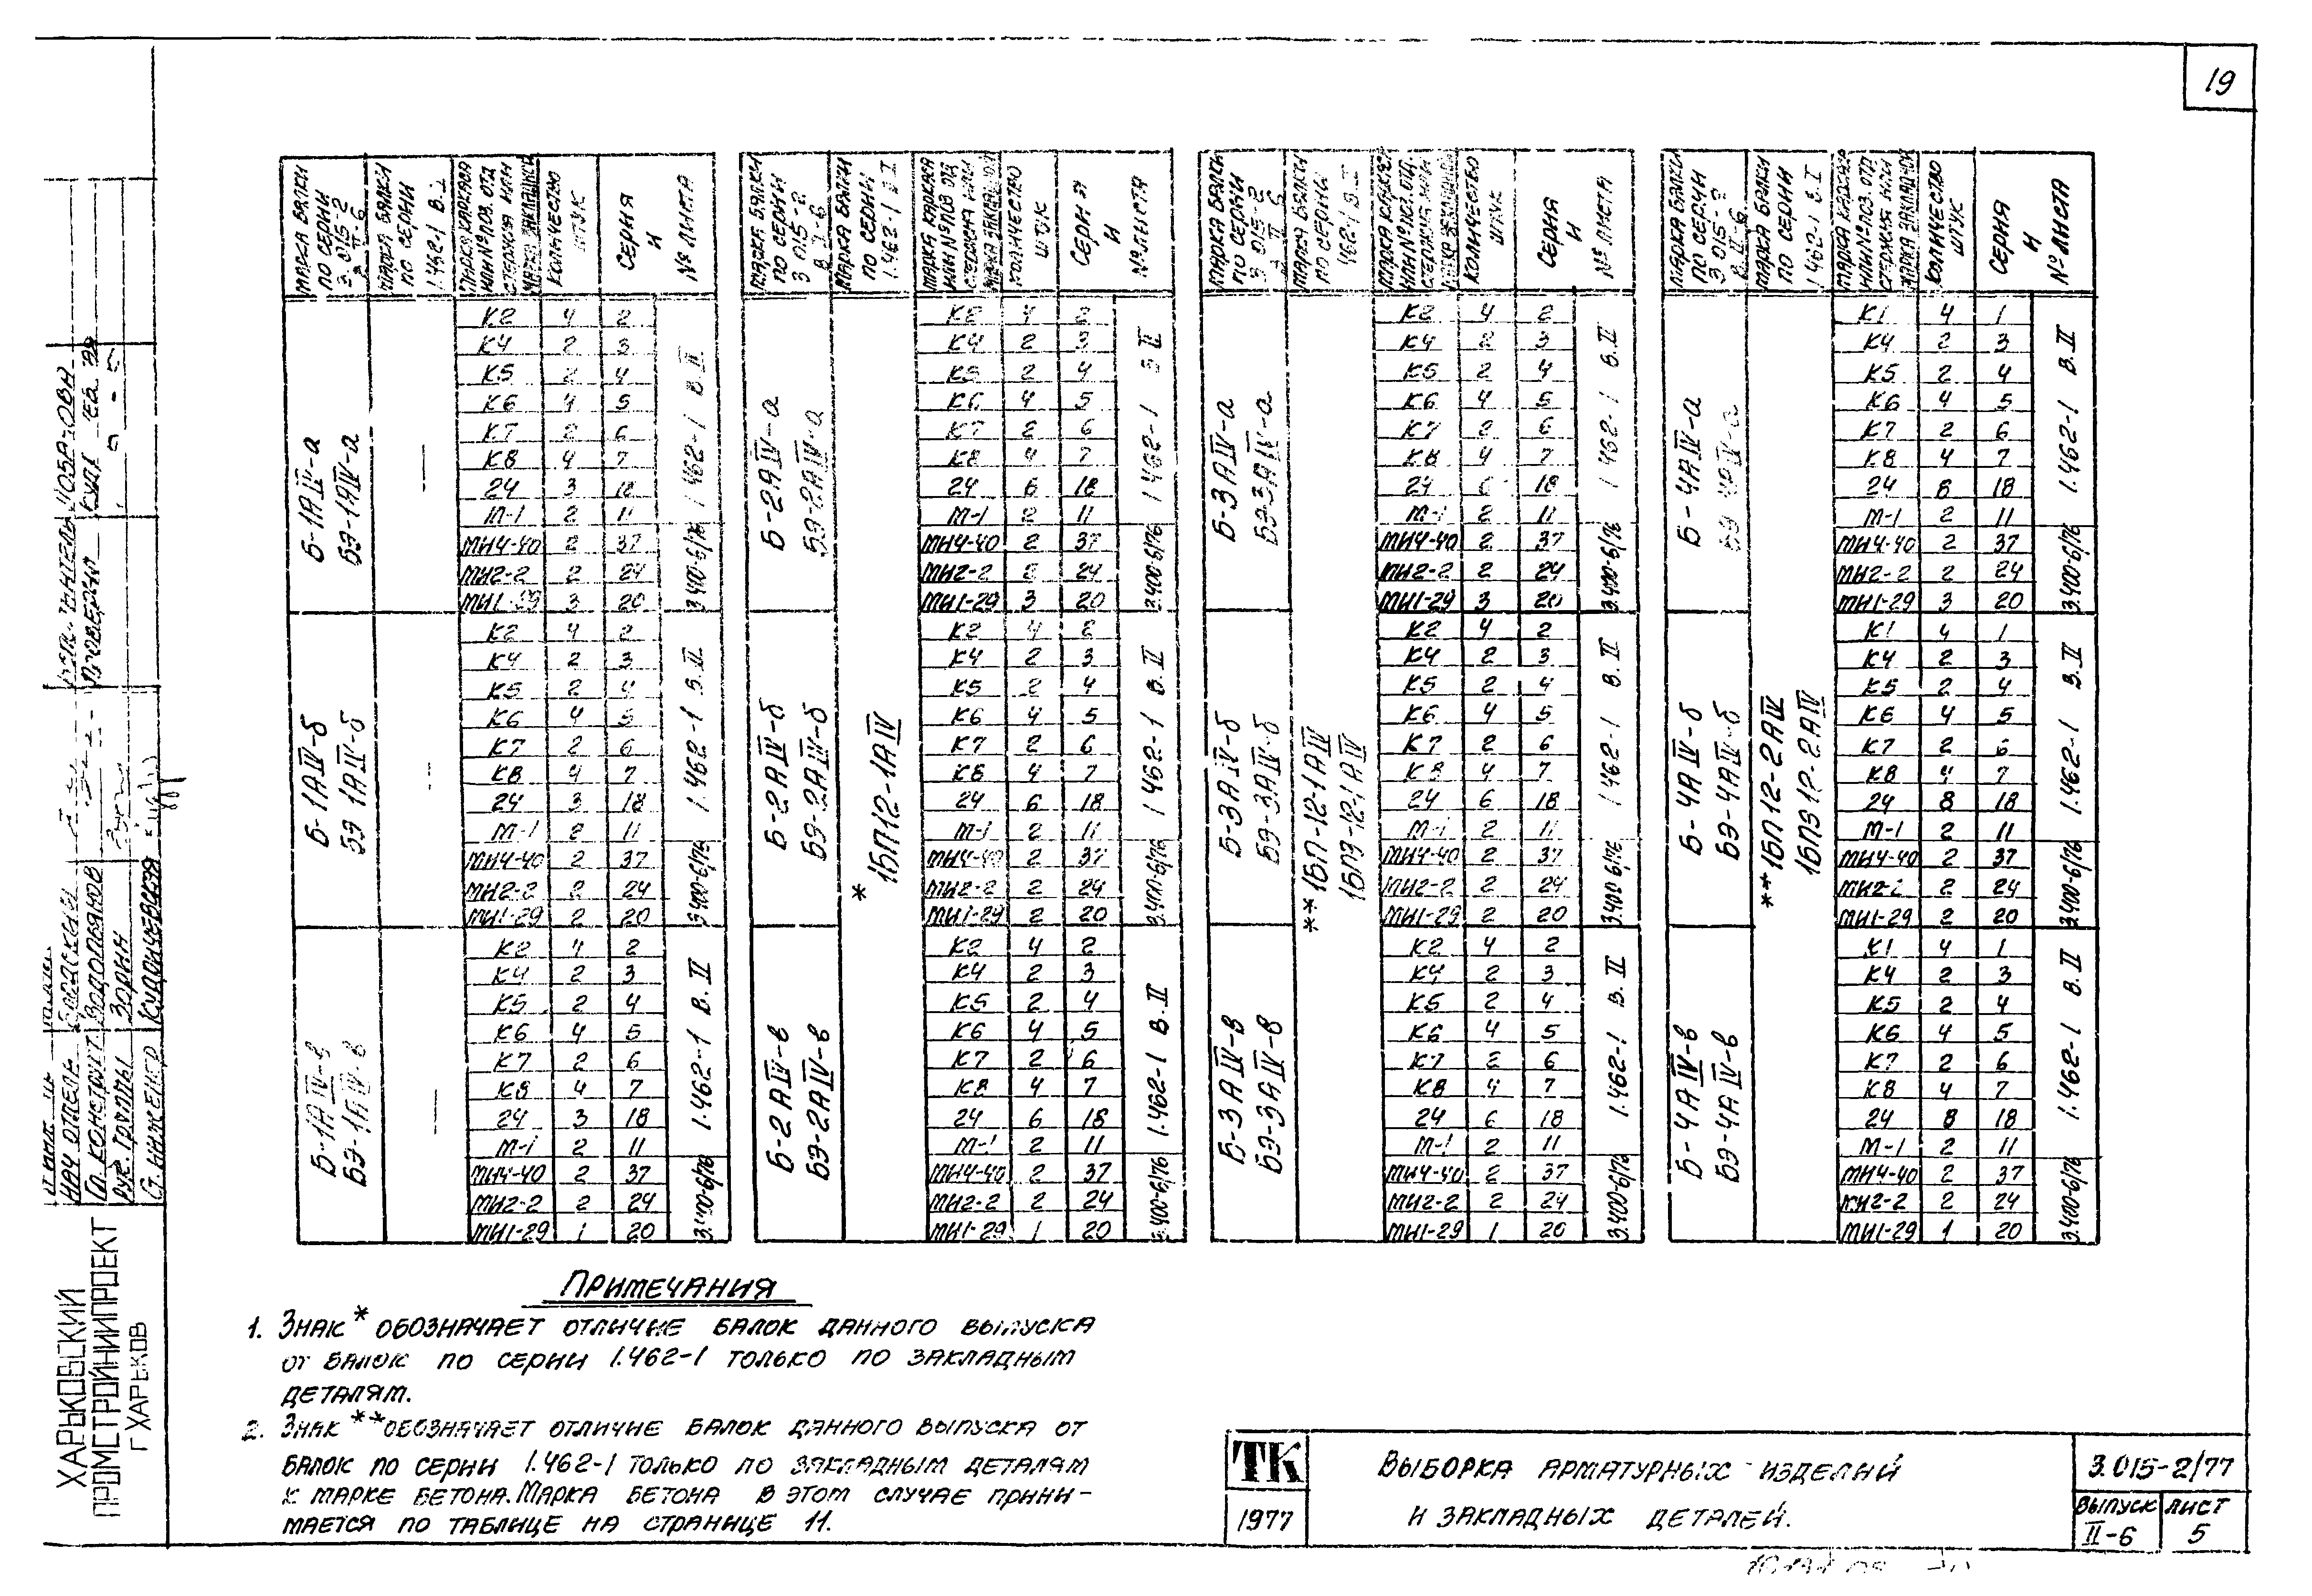 19
Марка балки по серии 3.015-2 в.II-6 | Марка балки по серии 1.462-1 в.I | Марка каркаса или № поз. отд. стержня или марка закладной | Количество штук | Серия и № листа
Б-1АIV-а БЭ-1АIV-а | — | 1.462-1 в.II | 3.400-6/76
К2 4 2
К4 2 3
К5 2 4
К6 4 5
К7 2 6
К8 4 7
24 3 18
М-1 2 11
МН4-40 2 37
МН2-2 2 24
МН1-29 3 20
Б-1АIV-б БЭ-1АIV-б | — | 1.462-1 в.II | 3.400-6/76
К2 4 2
К4 2 3
К5 2 4
К6 4 5
К7 2 6
К8 4 7
24 3 18
М-1 2 11
МН4-40 2 37
МН2-2 2 24
МН1-29 2 20
Б-1АIV-в БЭ-1АIV-в | — | 1.462-1 в.II | 3.400-6/76
К2 4 2
К4 2 3
К5 2 4
К6 4 5
К7 2 6
К8 4 7
24 3 18
М-1 2 11
МН4-40 2 37
МН2-2 2 24
МН1-29 1 20
Марка балки по серии 3.015-2 в.II-6 | Марка балки по серии 1.462-1 в.I | Марка каркаса или № поз. отд. стержня или марка закладной | Количество штук | Серия и № листа
* 1БП12-1АIV
Б-2АIV-а БЭ-2АIV-а | 1.462-1 в.II | 3.400-6/76
К2 4 2
К4 2 3
К5 2 4
К6 4 5
К7 2 6
К8 4 7
24 6 18
М-1 2 11
МН4-40 2 37
МН2-2 2 24
МН1-29 3 20
Б-2АIV-б БЭ-2АIV-б | 1.462-1 в.II | 3.400-6/76
К2 4 2
К4 2 3
К5 2 4
К6 4 5
К7 2 6
К8 4 7
24 6 18
М-1 2 11
МН4-40 2 37
МН2-2 2 24
МН1-29 2 20
Б-2АIV-в БЭ-2АIV-в | 1.462-1 в.II | 3.400-6/76
К2 4 2
К4 2 3
К5 2 4
К6 4 5
К7 2 6
К8 4 7
24 6 18
М-1 2 11
МН4-40 2 37
МН2-2 2 24
МН1-29 1 20
Марка балки по серии 3.015-2 в.II-6 | Марка балки по серии 1.462-1 в.I | Марка каркаса или № поз. отд. стержня или марка закладной | Количество штук | Серия и № листа
** 1БП-12-1АIV 1БПЭ-12-1АIV
Б-3АIV-а БЭ-3АIV-а | 1.462-1 в.II | 3.400-6/76
К2 4 2
К4 2 3
К5 2 4
К6 4 5
К7 2 6
К8 4 7
24 6 18
М-1 2 11
МН4-40 2 37
МН2-2 2 24
МН1-29 3 20
Б-3АIV-б БЭ-3АIV-б | 1.462-1 в.II | 3.400-6/76
К2 4 2
К4 2 3
К5 2 4
К6 4 5
К7 2 6
К8 4 7
24 6 18
М-1 2 11
МН4-40 2 37
МН2-2 2 24
МН1-29 2 20
Б-3АIV-в БЭ-3АIV-в | 1.462-1 в.II | 3.400-6/76
К2 4 2
К4 2 3
К5 2 4
К6 4 5
К7 2 6
К8 4 7
24 6 18
М-1 2 11
МН4-40 2 37
МН2-2 2 24
МН1-29 1 20
Марка балки по серии 3.015-2 в.II-6 | Марка балки по серии 1.462-1 в.I | Марка каркаса или № поз. отд. стержня или марка закладной | Количество штук | Серия и № листа
** 1БП12-2АIV 1БПЭ12-2АIV
Б-4АIV-а БЭ-4АIV-а | 1.462-1 в.II | 3.400-6/76
К1 4 1
К4 2 3
К5 2 4
К6 4 5
К7 2 6
К8 4 7
24 8 18
М-1 2 11
МН4-40 2 37
МН2-2 2 24
МН1-29 3 20
Б-4АIV-б БЭ-4АIV-б | 1.462-1 в.II | 3.400-6/76
К1 4 1
К4 2 3
К5 2 4
К6 4 5
К7 2 6
К8 4 7
24 8 18
М-1 2 11
МН4-40 2 37
МН2-2 2 24
МН1-29 2 20
Б-4АIV-в БЭ-4АIV-в | 1.462-1 в.II | 3.400-6/76
К1 4 1
К4 2 3
К5 2 4
К6 4 5
К7 2 6
К8 4 7
24 8 18
М-1 2 11
МН4-40 2 37
МН2-2 2 24
МН1-29 1 20
Примечания
1. Знак * обозначает отличие балок данного выпуска
от балок по серии 1.462-1 только по закладным
деталям.
2. Знак ** обозначает отличие балок данного выпуска от
балок по серии 1.462-1 только по закладным деталям
и марке бетона. Марка бетона в этом случае прини-
мается по таблице на странице 11.
ТК
1977
Выборка арматурных изделий
и закладных деталей.
3.015-2/77
Выпуск II-6
Лист 5
Харьковский
Промстройниипроект
г Харьков
Нач отдела
Гл. конструкт. Водопьянов
Рук. группы Зорин
Ст. инженер
Проверил